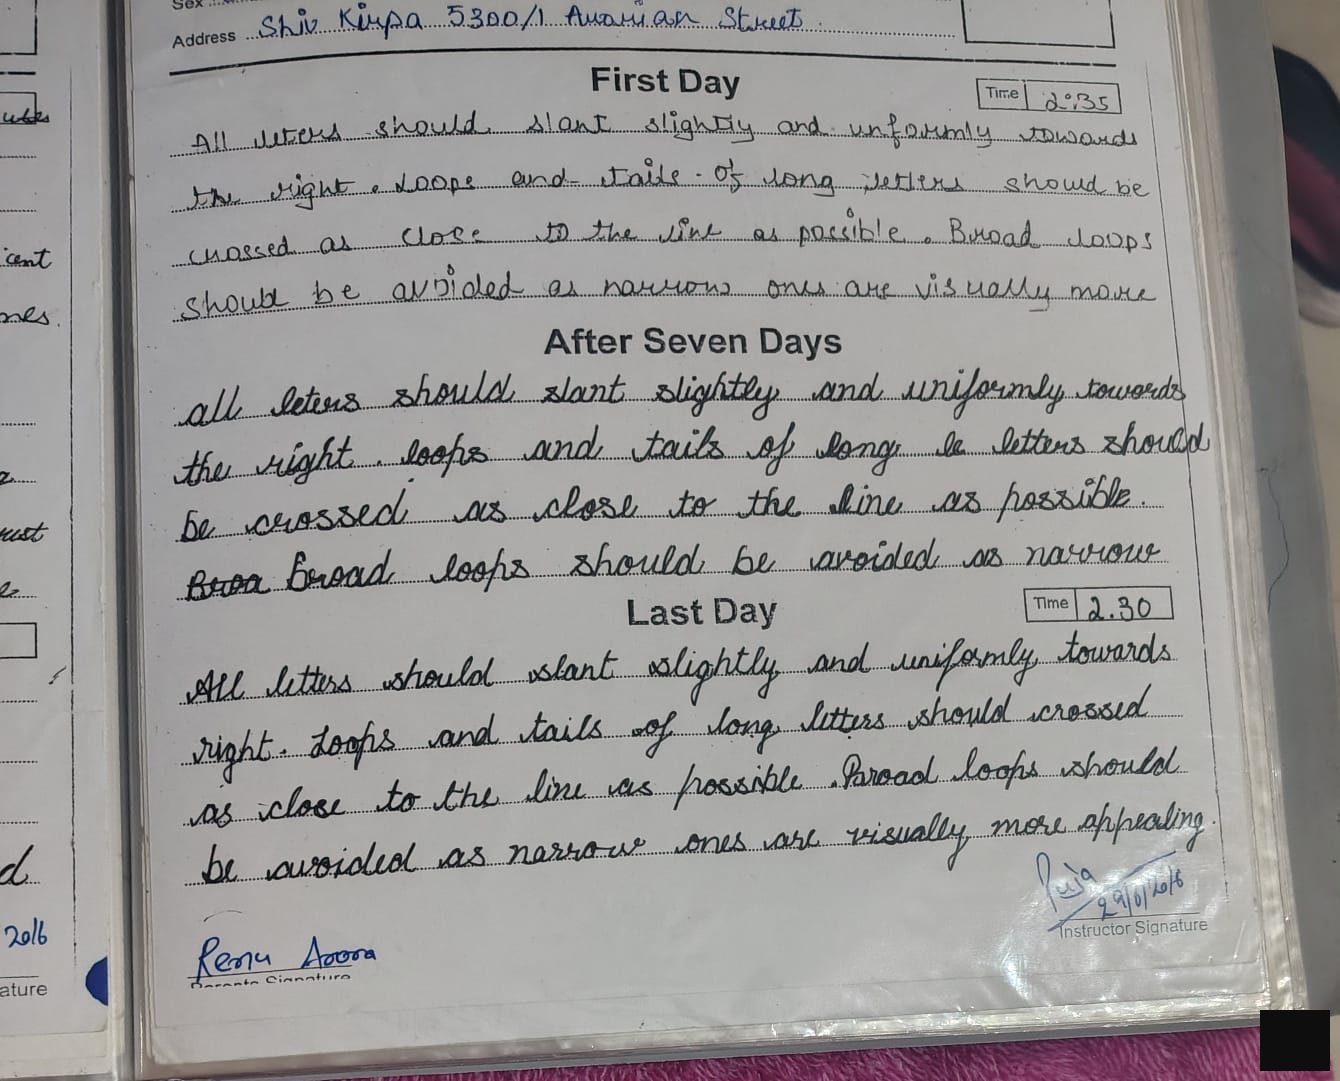 Sex
Address Shiv Kirpa 5300/1 Street
First Day
Time 2:35
All leters should slant slightly and unformly towards
the right. Loops and tails of long letters should be
crossed as close to the line as possible. Broad loops
should be avoided as narrow ones are visually more
After Seven Days
all leters should slant slightly and uniformly towards
the right. loops and tails of long le letters should
be crossed as close to the line as possible.
Broa broad loops should be avoided as narrow
Last Day
Time 2.30
All letters should slant slightly and uniformly towards
right. Loops and tails of long letters should crossed
as close to the line as possible. Broad loops should
be avoided as narrow ones are visually more appealing.
Instructor Signature
Renu Arora
Parents Signature
icent
nes.
rust
d
2016
ature